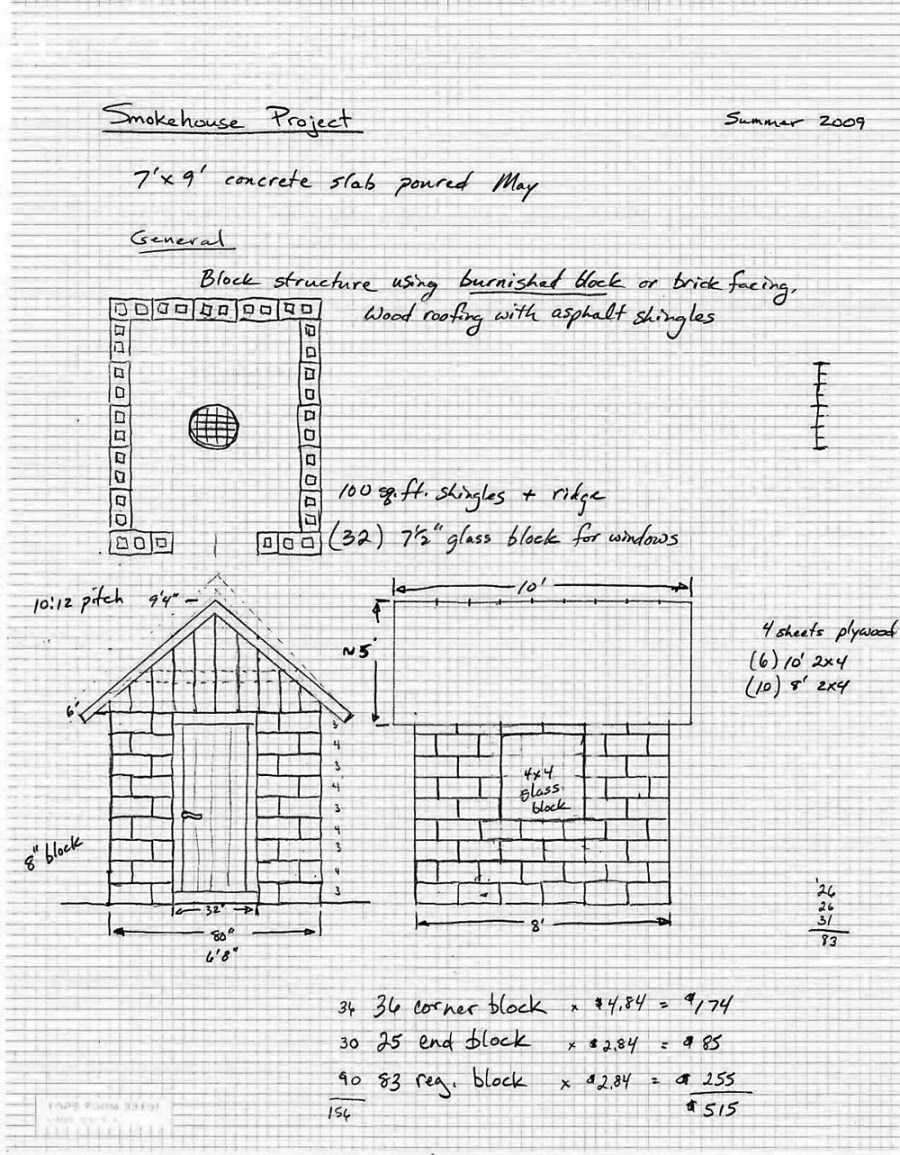 Smokehouse Project
Summer 2009
7'x 9' concrete slab poured May
General
Block structure using burnished block or brick facing.
Wood roofing with asphalt shingles
100 sq.ft. shingles + ridge
(32) 7½" glass block for windows
10:12 pitch 9'4"
10'
~5'
4 sheets plywood
(6) 10' 2x4
(10) 8' 2x4
6"
3
4
3
4
3
4
3
4
3
4x4
glass
block
8" block
32"
80"
6'8"
8'
26
26
31
83
36 36 corner block x $4.84 = $174
30 25 end block x $2.84 = $85
90 83 reg. block x $2.84 = $255
156 $515